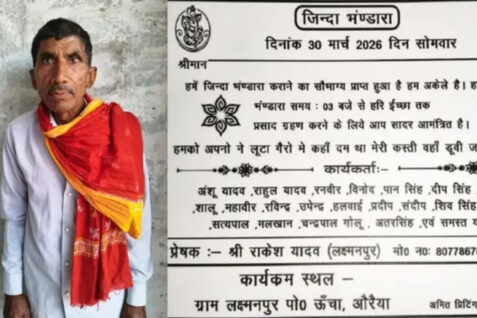 जिन्दा भंण्डारा
दिनांक 30 मार्च 2026 दिन सोमवार
श्रीमान
हमें जिन्दा भण्डारा कराने का सौभाग्य प्राप्त हुआ है हम अकेले है।
भंण्डारा समय : 03 बजे से हरि ईच्छा तक
प्रसाद ग्रहण करने के लिये आप सादर आमंत्रित है।
हमको अपनो ने लूटा गैरो मे कहाँ दम था मेरी कस्ती वहाँ डूवी
कार्यकर्ताः-
अंशू यादव ,राहुल यादव ,रनवीर ,विनोद ,पान सिंह ,दीप सिंह
,शालू ,महावीर ,रविन्द्र ,उपेन्द्र ,हलवाई ,प्रदीप ,संदीप ,शिव सिंह
,सत्यपाल ,मलखान ,चन्द्रपाल गोलू , अतरसिंह ,एवं समस्त
प्रेषक :– श्री राकेश यादव (लक्ष्मनपुर) मो0 नо: 8077867
कार्यकम स्थल –
ग्राम लक्ष्मनपुर पो0 ऊँचा, औरैया अमित प्रिटिंग